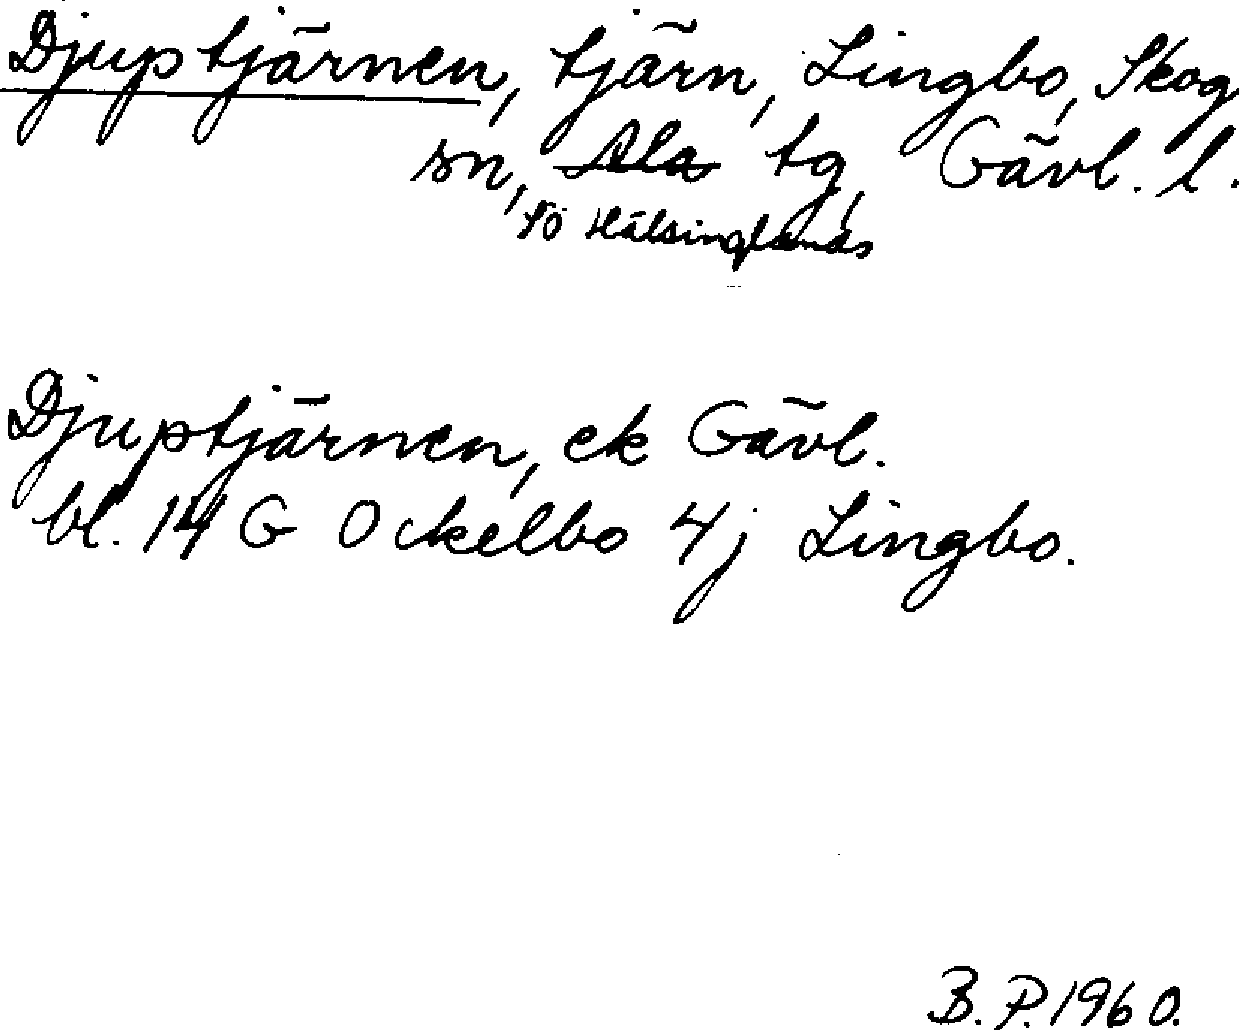 Djuptjärnen, tjärn, Lingbo, Skog
sn, Ala tg, Gävl. l.
Sö Hälsinglands
Djuptjärnen, ek Gävl.
bl. 14 G Ockelbo 4j Lingbo.
B. P. 1960.